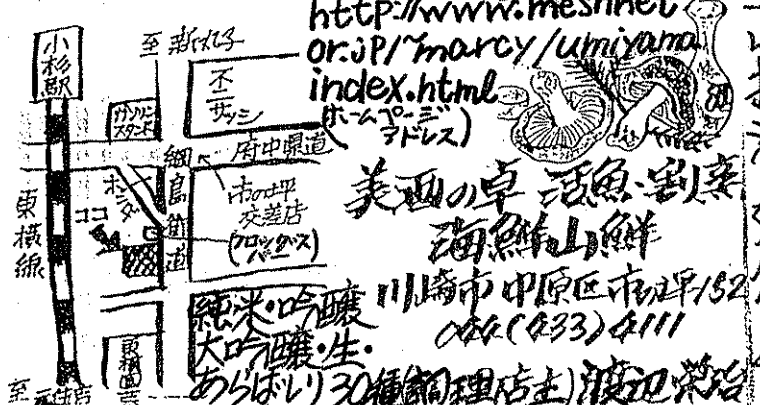 http://www.meshnet
or.jp/~marcy/umiyama
index.html
(ホームページ
アドレス)
小杉駅
至 新丸子
不二サッシ
ガソリン
スタンド
府中県道
綱島街道
市の坪
交差店
ホンダ
ココ
東横線
美酒の卓 活魚・割烹
海鮮山鮮
川崎市中原区市ノ坪152
044(433)4111
純米・吟醸
大吟醸・生・
あらばしり30種
調理店主)渡辺栄治